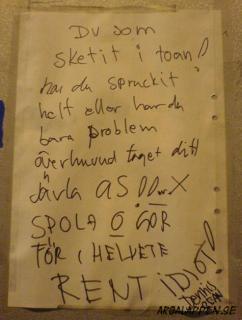 DU som
sketit i toan!
har du spruckit
helt eller har du
bara problem
överhuvud taget ditt
Jävla AS
SPOLA O GÖR
FÖR I HELVETE
RENT iDiOT!
ARGALAPPEN.SE